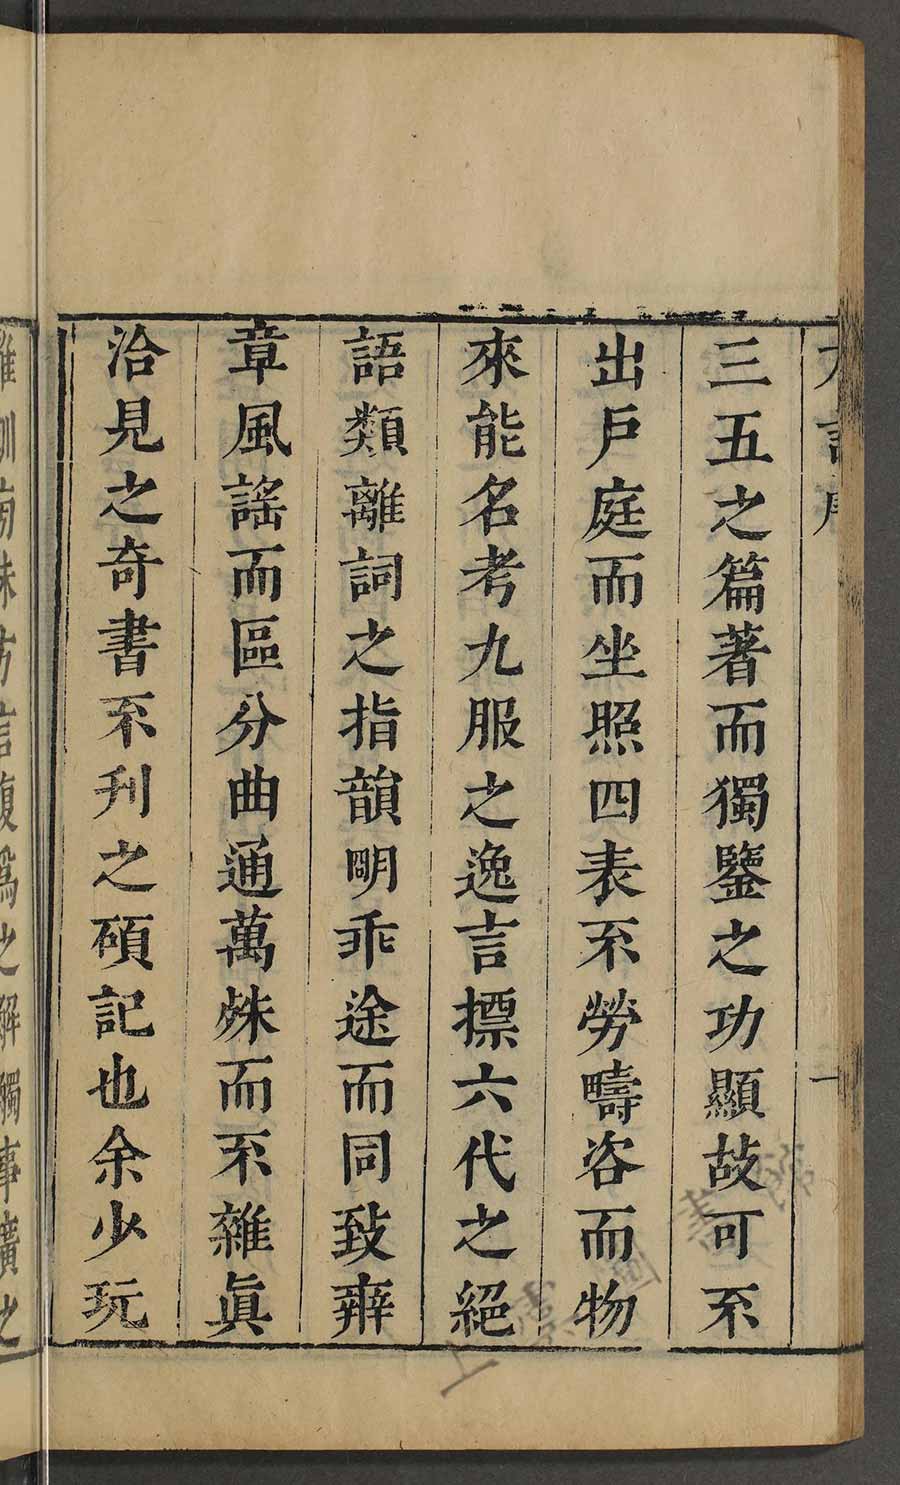 三五之篇著而獨鑒之功顯故可不
出戶庭而坐照四表不勞疇咨而物
來能名考九服之逸言摽六代之絕
語類離詞之指韻明乖途而同致辨
章風謠而區分曲通萬殊而不雜眞
洽見之奇書不刊之碩記也余少玩
雅訓旁味方言復爲之解觸事廣之